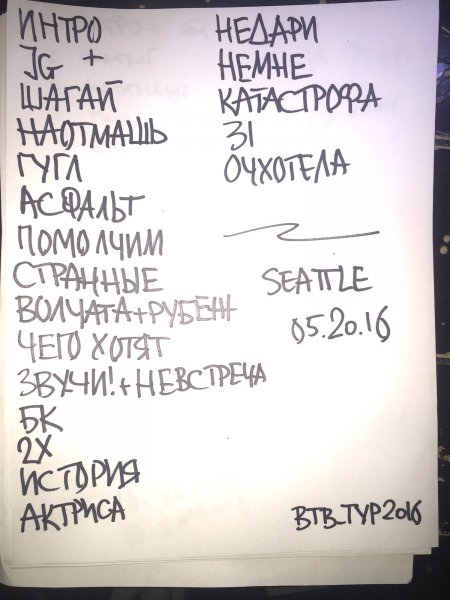 ИНТРО
JG +
ШАГАЙ
НАОТМАШЬ
ГУГЛ
АСФАЛЬТ
ПОМОЛЧИМ
СТРАННЫЕ
ВОЛЧАТА+РУБЕЖ
ЧЕГО ХОТЯТ
ЗВУЧИ!+НЕВСТРЕЧА
БК
2Х
ИСТОРИЯ
АКТРИСА
НЕДАРИ
НЕМНЕ
КАТАСТРОФА
31
ОЧХОТЕЛА
SEATTLE
05.20.16
BTB_ТУР2016